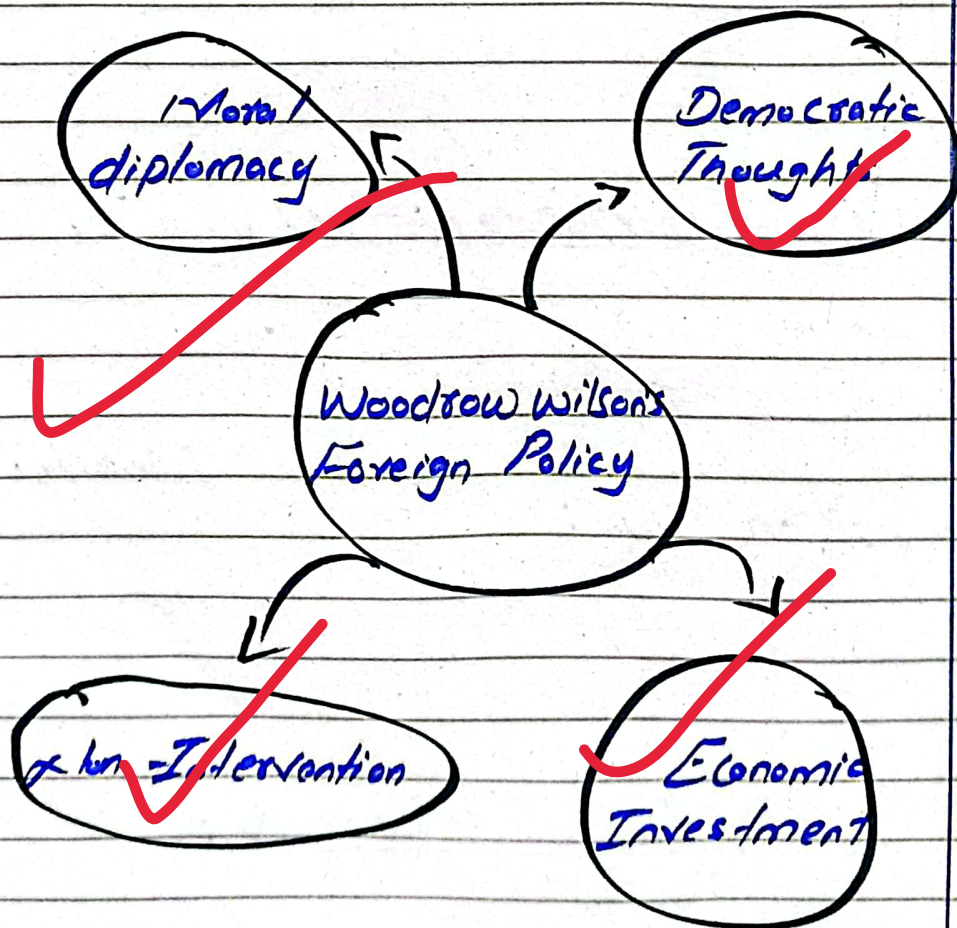 Moral
diplomacy
Democratic
Thoughts
Woodrow Wilson's
Foreign Policy
Non-Intervention
Economic
Investment